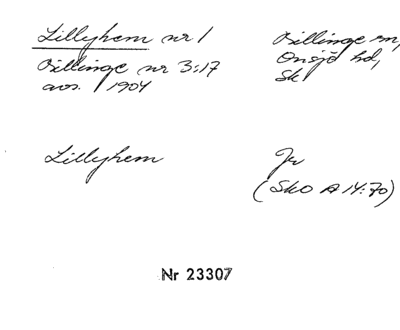 Lillyhem nr 1
Billinge sn,
Billinge nr 3:17
Onsjö hd,
avs. 1904
Sk
Lillyhem
Jr
(Sko A 14:70)
Nr 23307